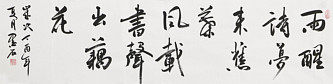 雨醒
詩夢
來蕉
葉
風載
書聲
出藕
花
歲次丁酉年
夏月